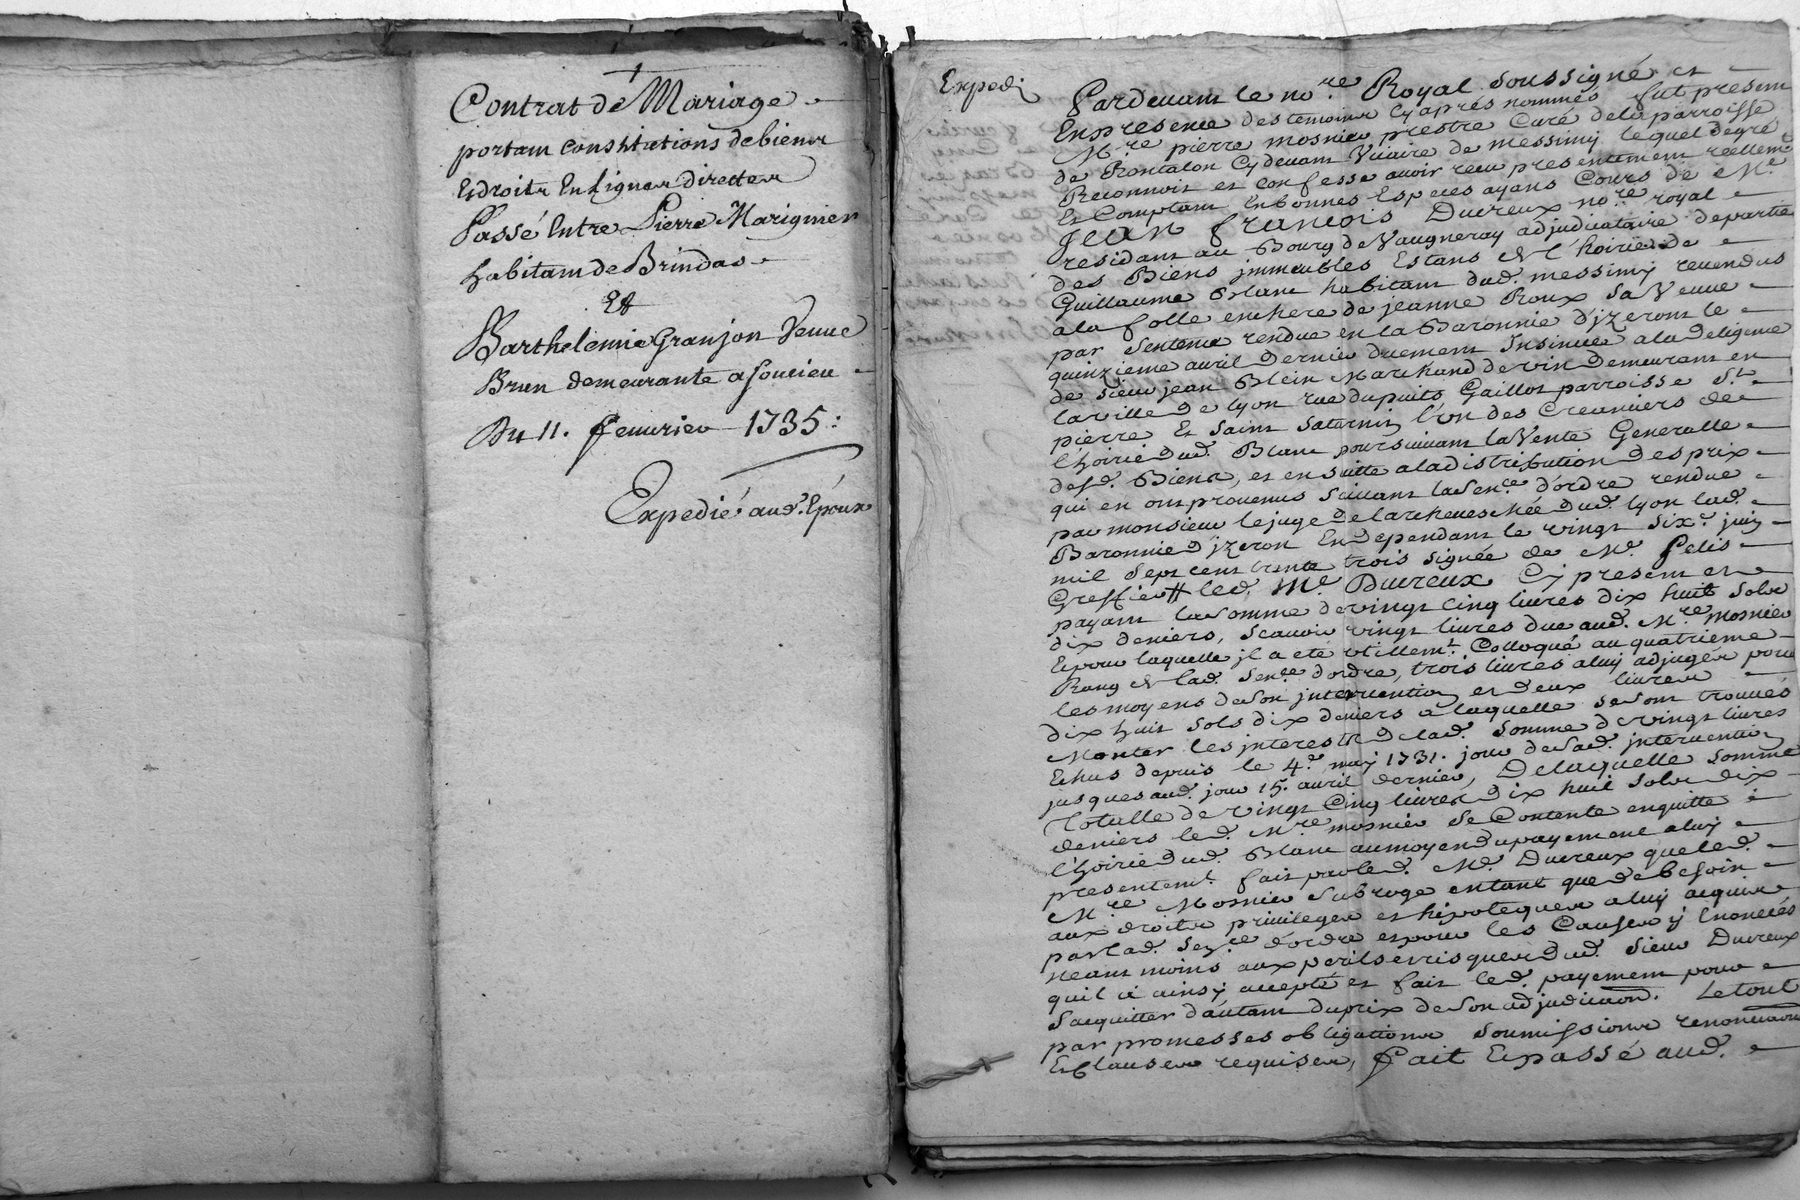 Contrat de Mariage
portant constitutions de biens
Et droits En Lignes directes
Passé Entre Pierre Marignier
habitant de Brindas
Et
Barthelemie Granjon Veuve
Brun demeurante a soucieu
Du 11. feuurier 1735:
Expedié aud. Epoux
Expedi
Pardeuant le no.re Royal soussigné et
En presence des temoins Cy aprés nommés fut present
M.re pierre mosnier prestre Curé dela parroisse
de Rontalon Cy deuant Vicaire de messimy lequel degré
Reconnoit et confesse auoir receu presentement reellemt.
Et Comptant En bonnes Especes ayans Cours de M.e
Jean François Ducreux no.re royal
residant au Bourg de Vaugneray adjudicataire de partie
des Biens jmmeubles Estans en l'hoirie de
Guillaume Blanc habitant dud. messimy reuendus
a la folle enchere de jeanne Roux sa Veuue
par sentence rendue en la Baronnie d'jzeront le
quinzieme auril dernier duement Insinuée a la deligence
de sieur jean Blein Marchand de vin demeurant en
la ville de lyon rue du puits Gaillot parroisse St.
pierre Et saint saturnin l'un des Creanciers de
l'hoirie dud. Blanc poursuiuant la Vente Generalle
desd. Biens, et ensuitte a la distribution des prix
qui en ont prouenus suiuant la sen.ce d'ordre rendue
par monsieur le juge de l'archeueschée dud. lyon lad.
Baronnie d'jzeron En dependant le vingt six.e juin
mil sept cent trente trois signée de M.e felis
Greffier # led. M.e Ducreux Cy present et
payant la somme de vingt cinq liures dix huit sols
dix deniers, scauoir vingt liures due aud. M.re mosnier
Et pour laquelle jl a eté vtillem.t Colloqué au quatrieme
Rang en lad. sen.ce d'ordre, trois liures a luy adjugés pour
les moyens de son jnteruention et deux liures
dix huit sols dix deniers a laquelle se sont trouués
Monter les jnterests de lad. somme de vingt liures
Echus depuis le 4.e may 1731. jour de sad. jnteruention
jusques aud. jour 15. auril dernier, De laquelle somme
Totalle de vingt Cinq liures dix huit sols dix
deniers led. M.re mosnier se Contente en quitte
l'hoirie dud. Blanc au moyen du payement a luy
presentemt. fait par led. M.e Ducreux que led.
M.re Mosnier subroge entant que de besoin
aux droits priuileges et hipoteques a luy acquis
par lad. sen.ce d'ordre et pour les Causes y Enoncées
neant moins aux perils et risques dud. sieur Ducreux
qui l'a ainsy accepté et fait led. payement pour
s'acquitter d'autant du prix de son adjudicaon. Le tout
par promesses obligations soumissions renonciaons
Et clauses requises, fait Et passé aud.